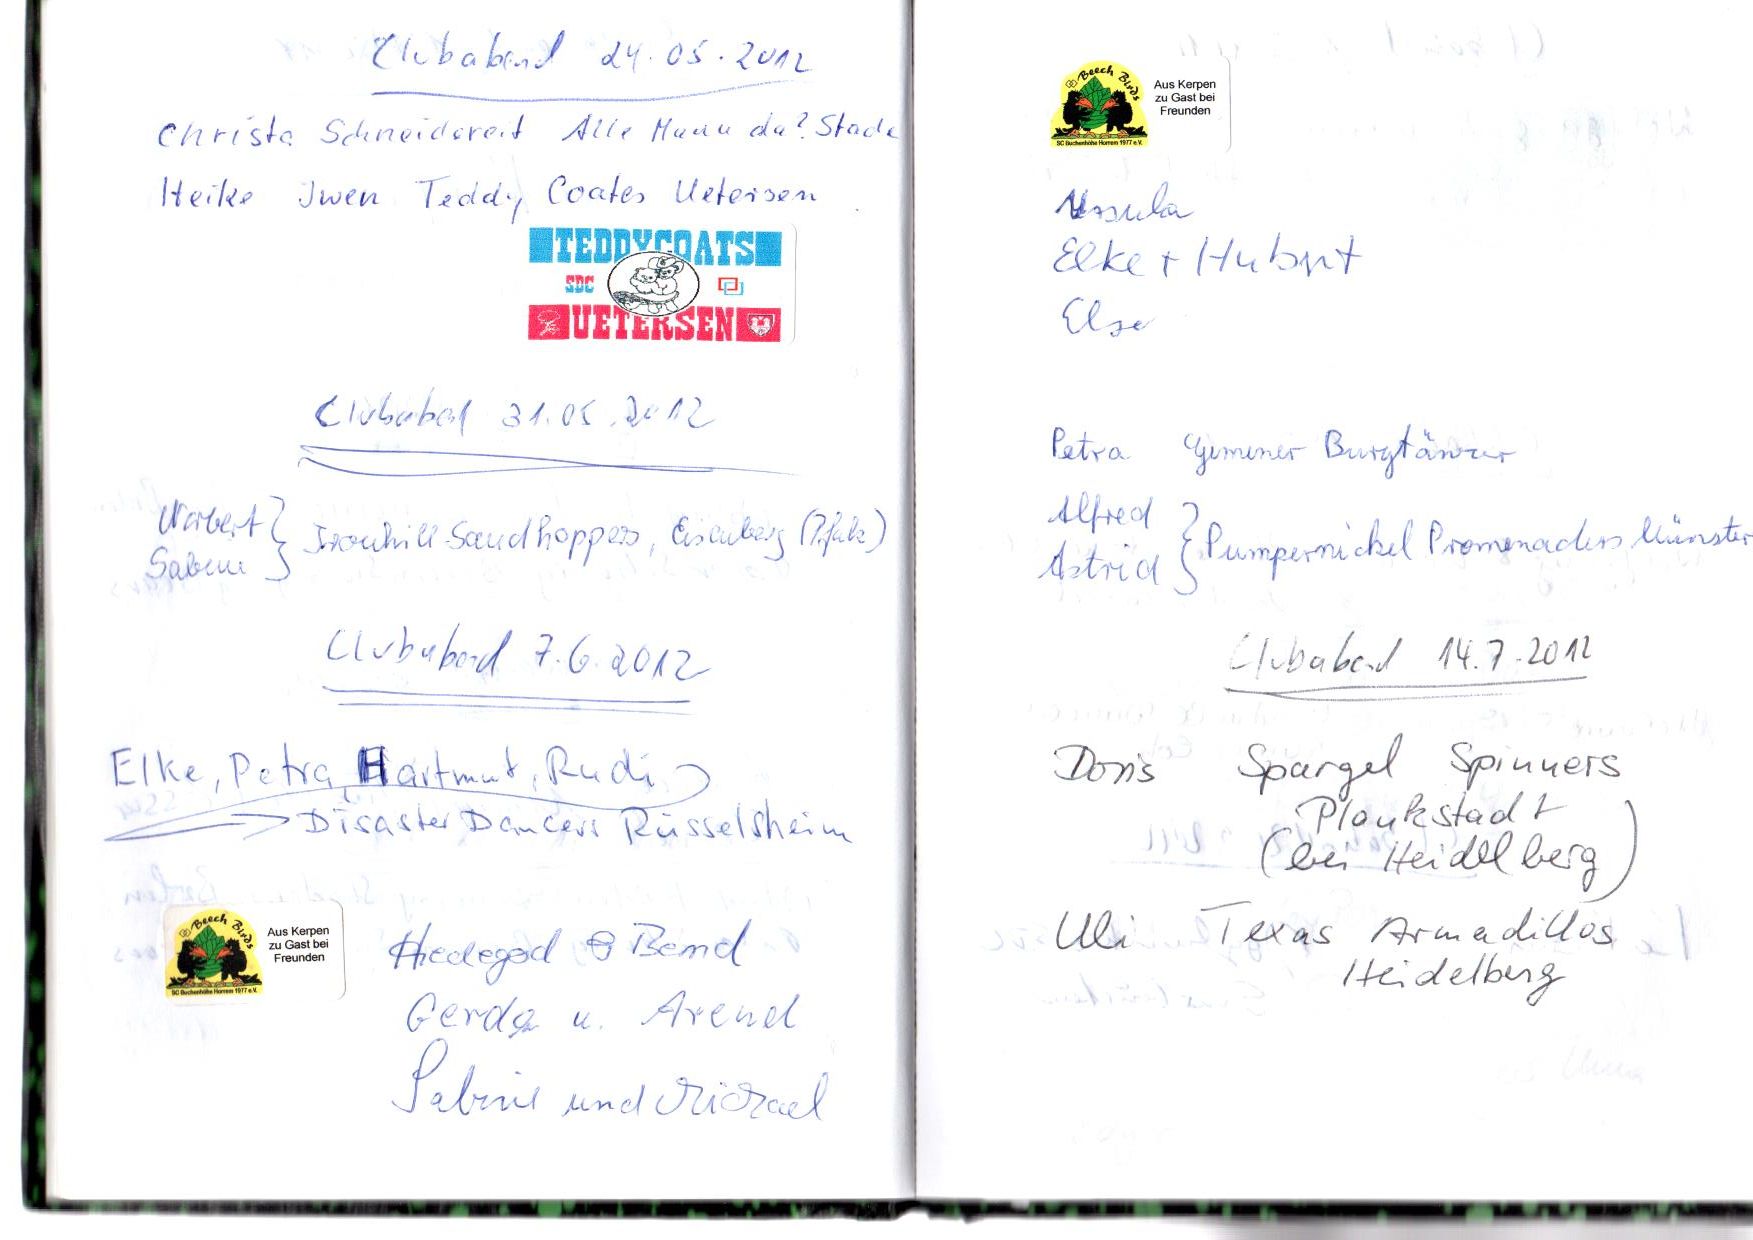 Clubabend 24.05.2012
Christa Schneidereit Alle Mann da? Stade
Heike Iwen Teddy Coates Uetersen
TEDDYCOATS
SDC
UETERSEN
Clubabend 31.05.2012
Norbert
Sabine } Ironhill-Sandhoppers, Eisenberg (Pfalz)
Clubabend 7.6.2012
Elke, Petra, Hartmut, Rudi
Disaster Dancers Rüsselsheim
Beech Birds
SC Buchenhöhe Horrem 1977 e.V.
Aus Kerpen
zu Gast bei
Freunden
& Bernd
Gerda u. Arend
Sabine und Michael
Beech Birds
SC Buchenhöhe Horrem 1977 e.V.
Aus Kerpen
zu Gast bei
Freunden
Ursula
Elke + Hubert
Else
Petra Gemener Burgtänzer
Alfred
Astrid } Pumpernickel Promenaders Münster
Clubabend 14.7.2012
Doris Spargel Spinners
Plankstadt
(bei Heidelberg)
Uli Texas Armadillos
Heidelberg